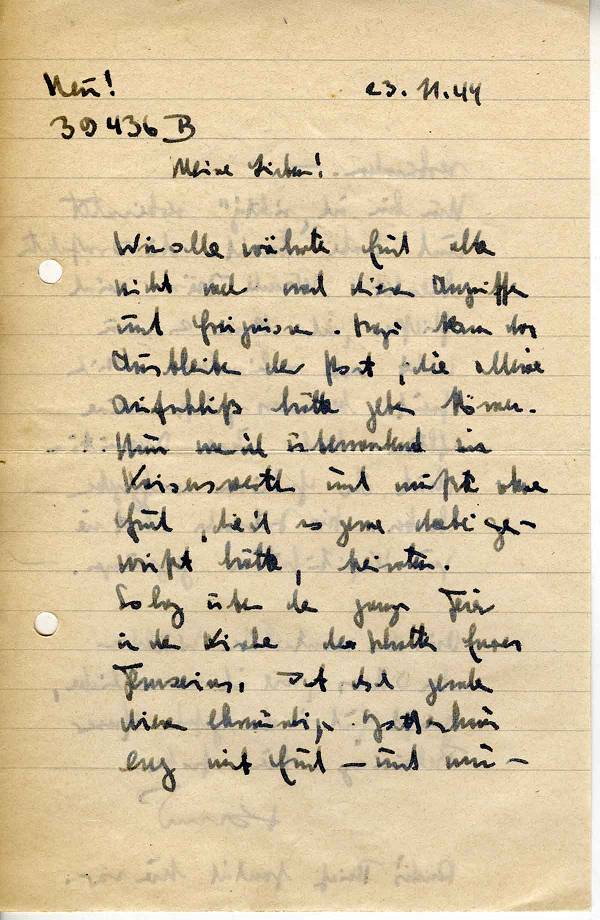 Neu!
23.11.44
39436 B
Meine Lieben!
Wir alle wähnte Euch alle
nicht mehr nach diesen Angriffen
und Ereignissen. Dazu kam das
Ausbleiben der Post, die alleine
Aufschluß hätte geben können.
Nun war ich überraschend in
Kaiserswerth und mußte ohne
Euch, die ich so gerne dabei ge-
wußt hätte, heiraten.
So lag über der ganzen Feier
in der Kirche der Schatten Eures
Fernseins. Ist doch gerade
dieses ehrwürdige Gotteshaus
eng mit Euch — und nur —